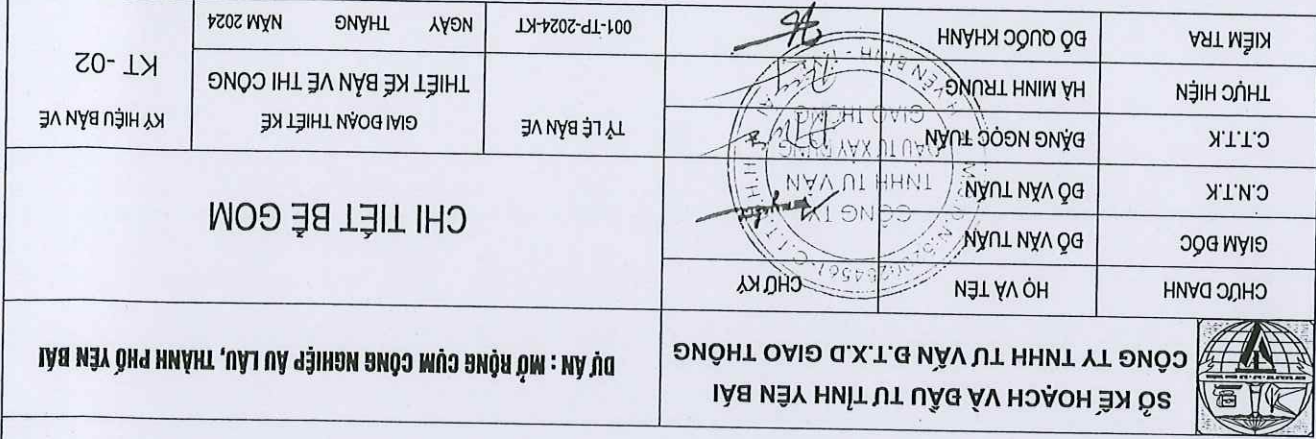 SỞ KẾ HOẠCH VÀ ĐẦU TƯ TỈNH YÊN BÁI
CÔNG TY TNHH TƯ VẤN Đ.T.X.D GIAO THÔNG
DỰ ÁN : MỞ RỘNG CỤM CÔNG NGHIỆP ÂU LÂU, THÀNH PHỐ YÊN BÁI
CHỨC DANH
HỌ VÀ TÊN
CHỮ KÝ
GIÁM ĐỐC
ĐỖ VĂN TUÂN
C.N.T.K
ĐỖ VĂN TUÂN
C.T.T.K
ĐẶNG NGỌC TUÂN
THỰC HIỆN
HÀ MINH TRUNG
KIỂM TRA
ĐỖ QUỐC KHÁNH
CÔNG TY
TNHH TƯ VẤN
ĐẦU TƯ XÂY DỰNG
GIAO THÔNG
CHI TIẾT BỂ GOM
TỶ LỆ BẢN VẼ
001-TP-2024-KT
GIAI ĐOẠN THIẾT KẾ
THIẾT KẾ BẢN VẼ THI CÔNG
NGÀY THÁNG NĂM 2024
KÝ HIỆU BẢN VẼ
KT - 02